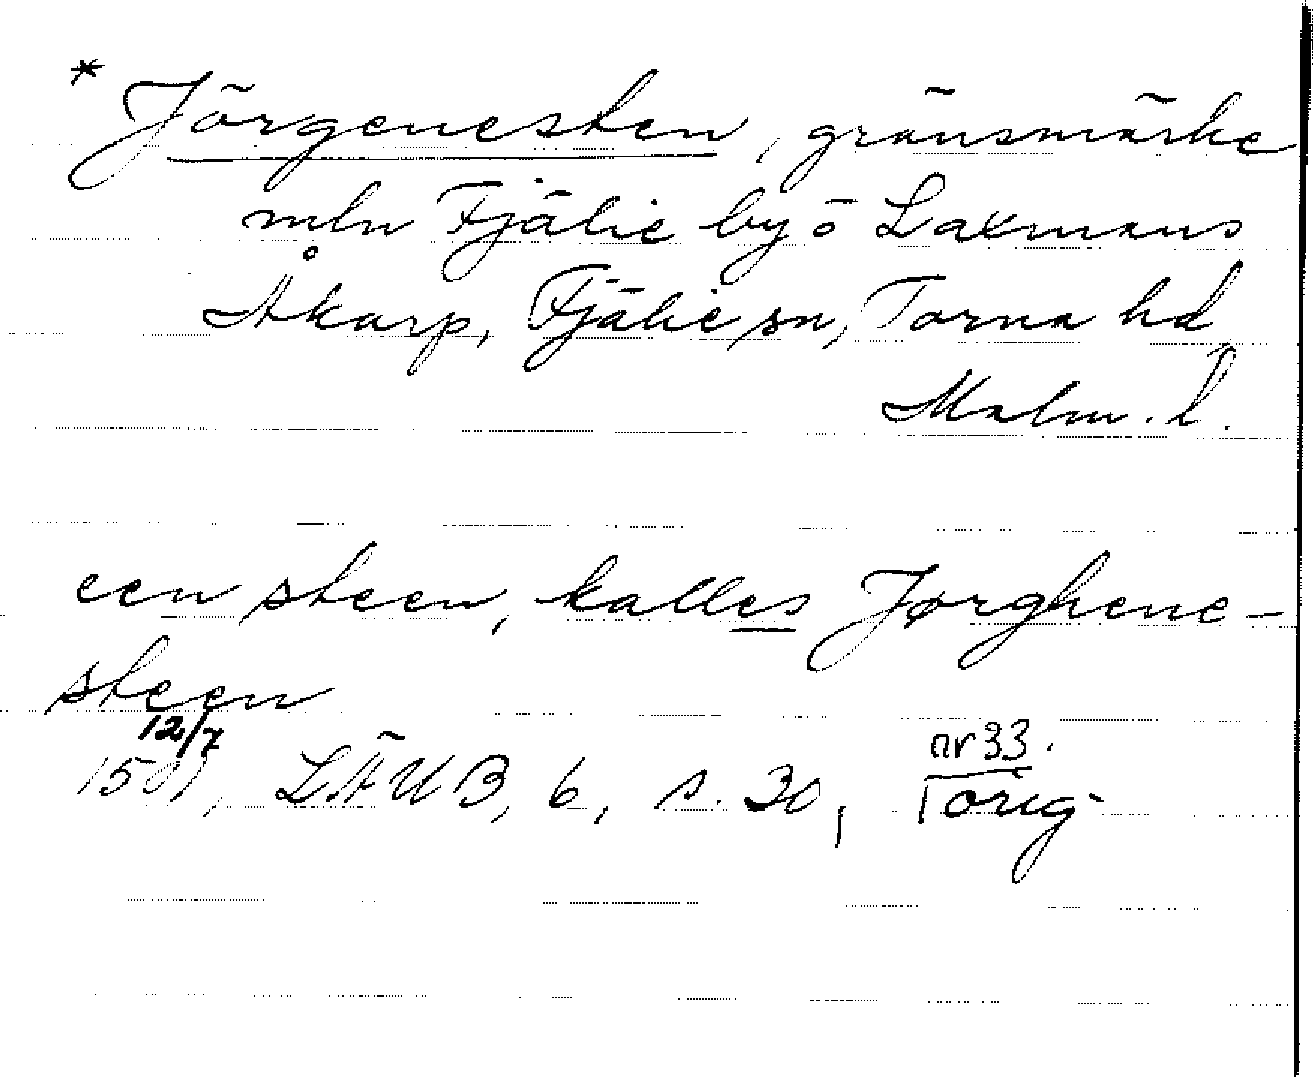 * Jörgenesten, gränsmärke
mln Fjälie by o Laxmans
Åkarp, Fjälie sn, Torna hd
Malm. l.
een steen, kalles Jørghene-
steen
12/7
nr 33.
LÄUB, 6, s. 30, orig